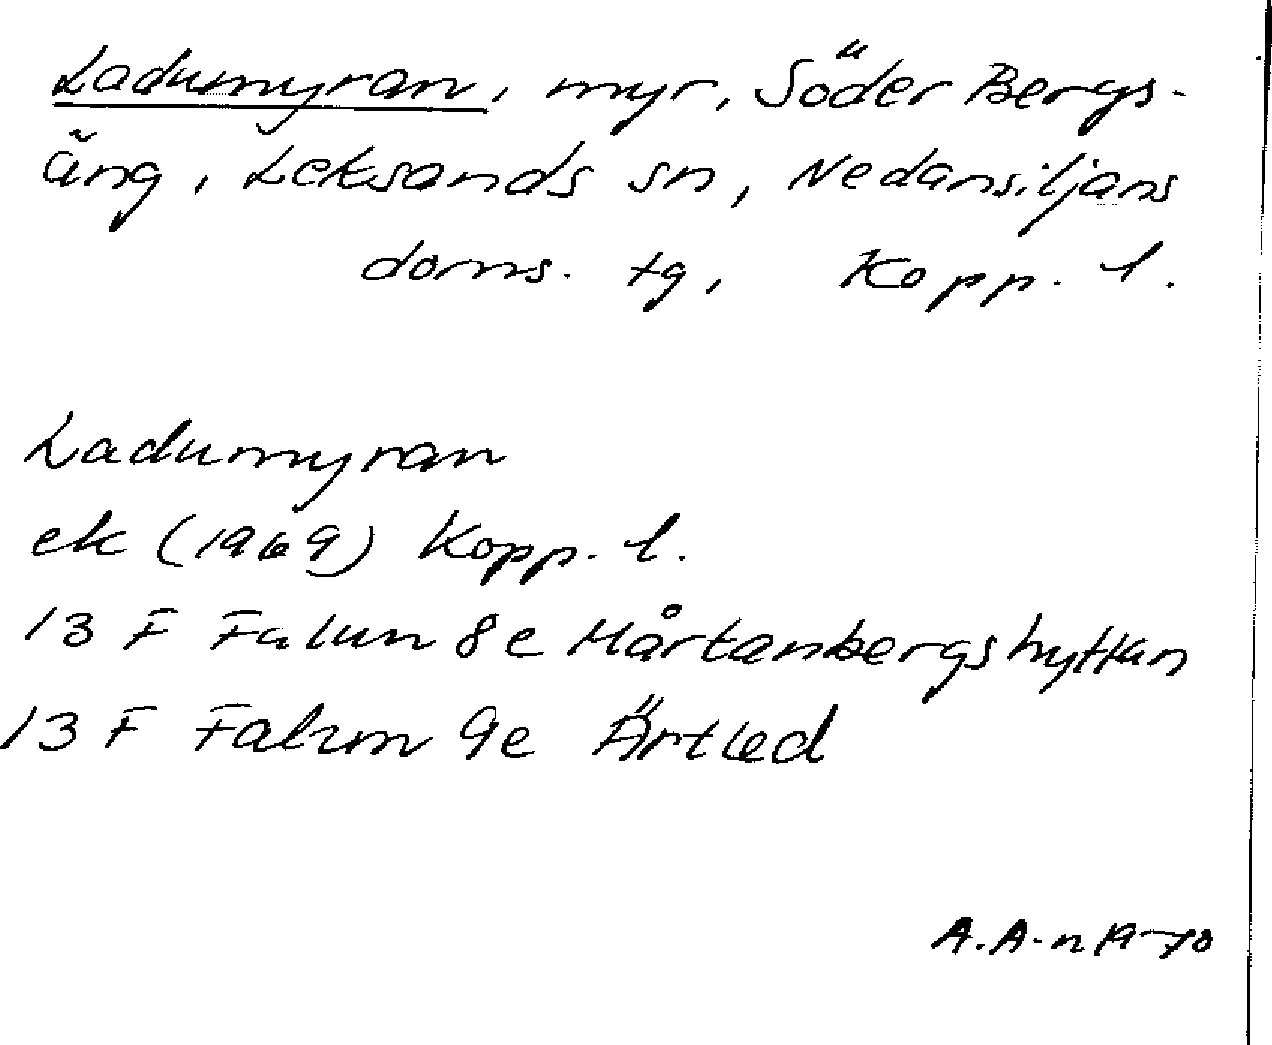 Ladumyran, myr, Söder Bergs-
äng, Leksands sn, Nedansiljans
doms. tg, Kopp. l.
Ladumyran
ek (1969) Kopp. l.
13 F Falun 8e Mårtanbergshyttan
13 F Falun 9e Ärtled
A.A-n 1970